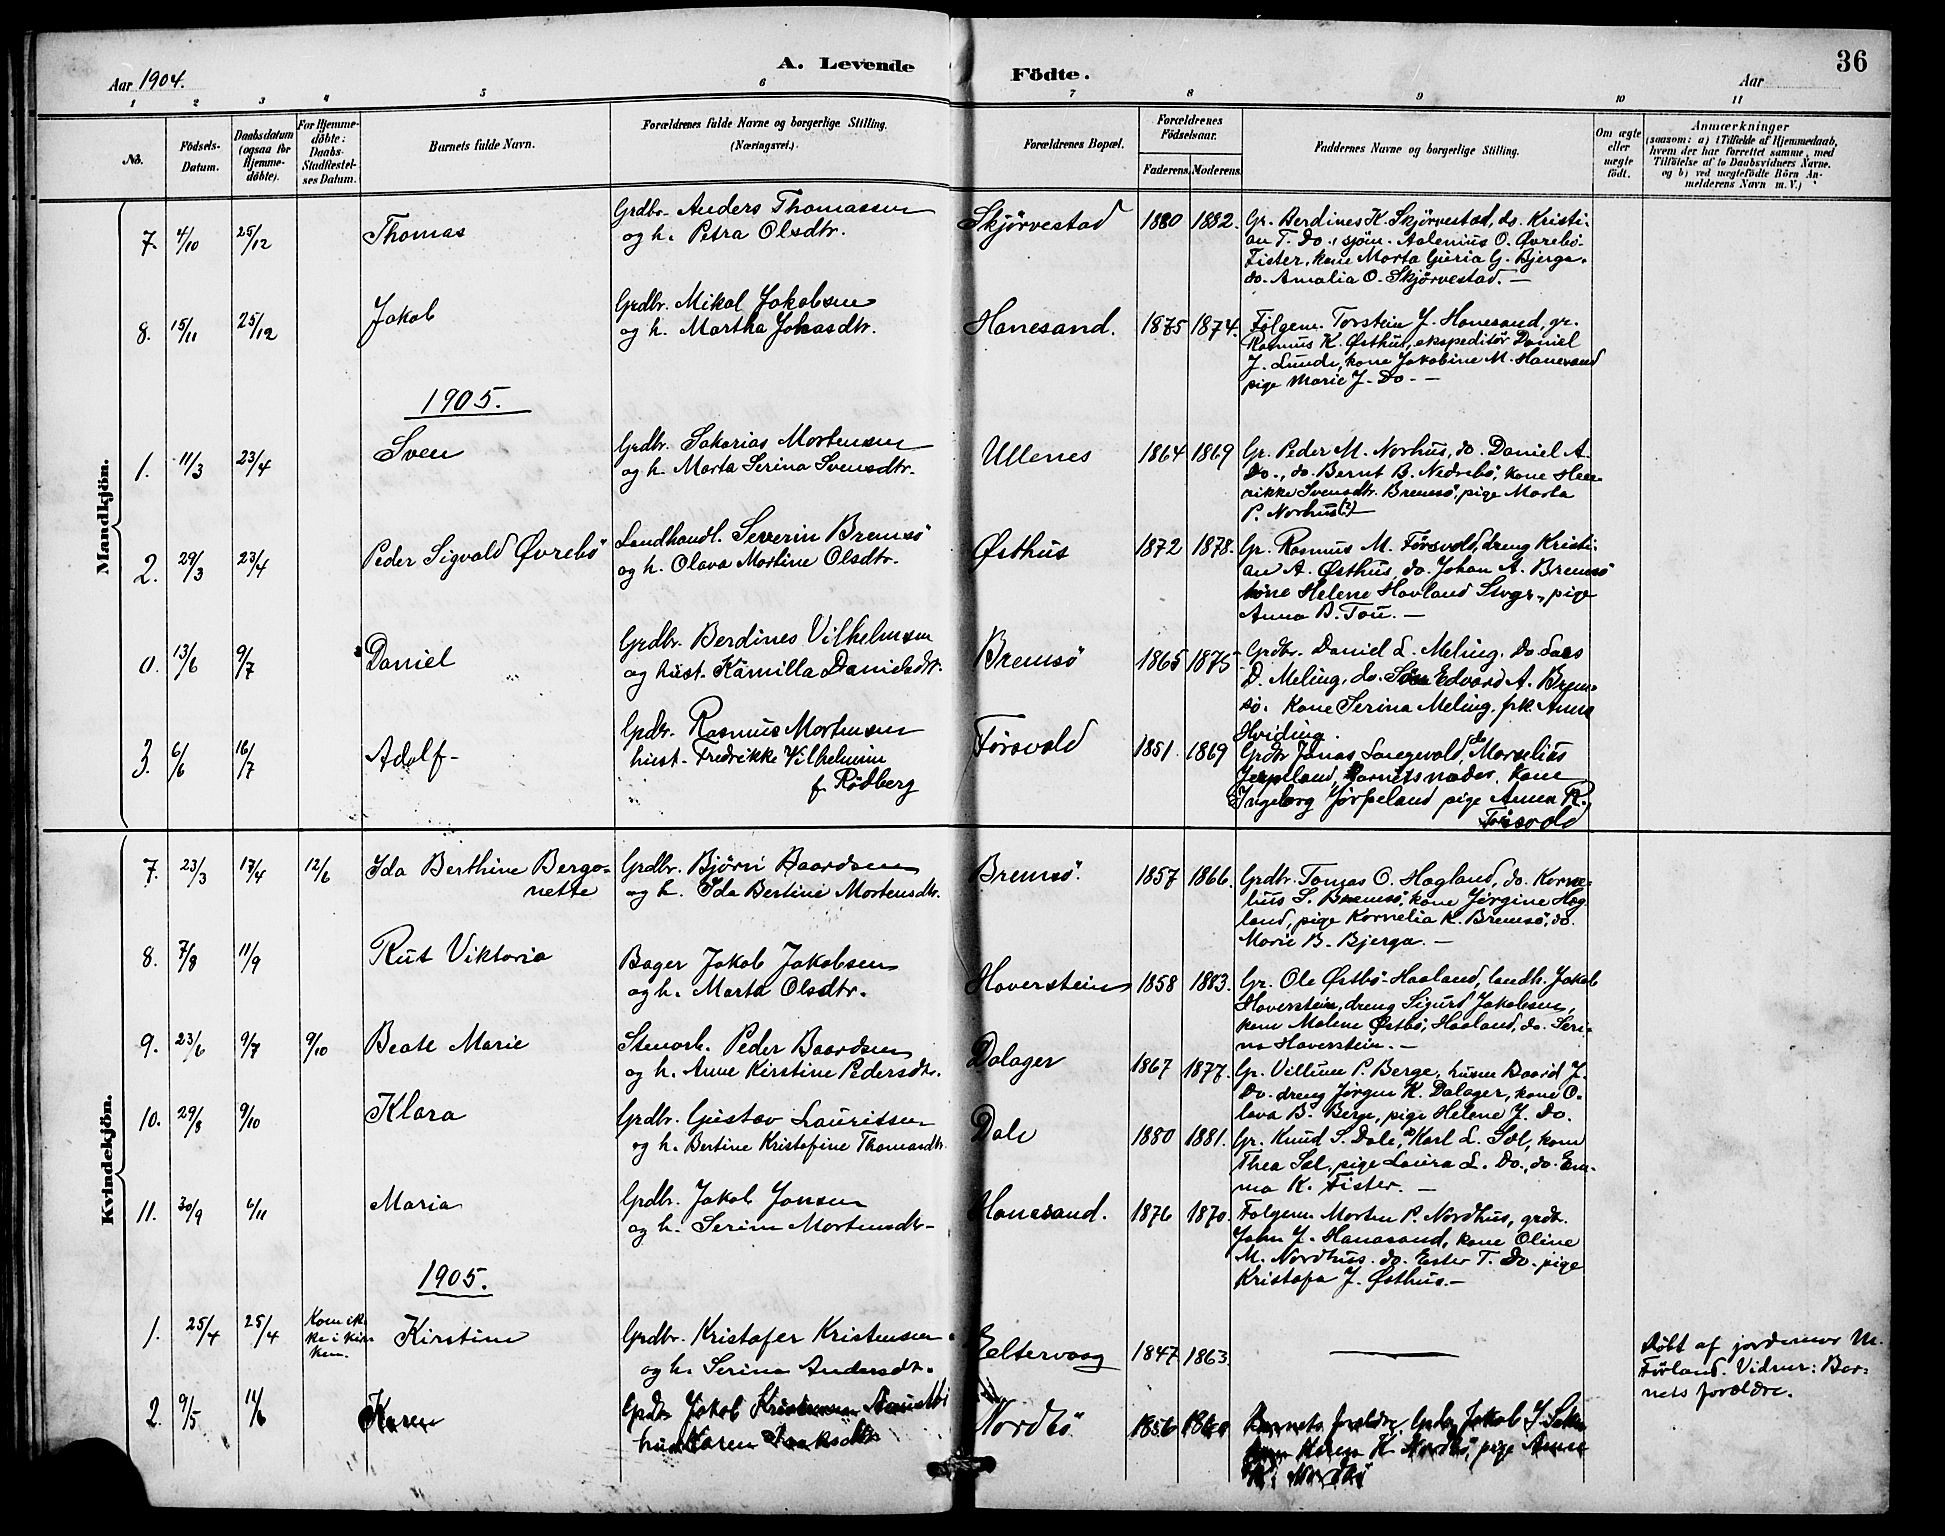 Aar 1904.
A. Levende Födte.
Aar
36
1 2 3 4 5 6 7 8 9 10 11
No.
Födsels-Datum.
Daabsdatum (ogsaa for Hjemme-döbte).
For Hjemme-döbte: Daabs-Stadfæstel-ses Datum.
Barnets fulde Navn.
Forældrenes fulde Navne og borgerlige Stilling. (Næringsvei.)
Forældrenes Bopæl.
Forældrenes Födselsaar.
Faderens. Moderens.
Faddernes Navne og borgerlige Stilling.
Om ægte eller uægte födt.
Anmærkninger
(saasom: a) i Tilfælde af Hjemmedaab,
hvem der har forrettet samme, med
Tilföielse af to Daabsvidners Navne,
og b) ved uægtefödte Börn An-
melderens Navn m. V.)
Mandkjön.
7. 4/10 25/12 Thomas
Grdbr. Anders Thomassen
og h. Petra Olsdtr.
Skjørvestad 1880 1882.
Gr. Berdines K. Skjørvestad, do. Kristi-
an T. Do., sjøm. Aalenius O. Øvrebö-
Fister, kone Marta Guria G. Bjerga,
do. Amalia O. Skjørvestad. —
8. 15/11 25/12 Jakob
Grdbr. Mikal Jakobsen
og h. Martha Johasdtr.
Hanesand. 1875 1874.
Følgem. Torstein J. Hanesand, gr.
Rasmus K. Østhus, ekspeditør Daniel
J. Lunde, kone Jakobine M. Hanesand
pige Marie J. Do. —
1905.
1. 11/3 23/4 Sven
Grdbr. Sakarias Mortensen
og h. Marta Serina Svensdtr.
Ullenes 1864 1869
Gr. Peder M. Norhus, do. Daniel A.
Do., do. Bernt B. Nedrebö, kone Hen-
rikke Svensdtr. Bremsö, pige Marta
P. Norhus (?)
2. 29/3 23/4 Peder Sigvald Øvrebö
Landhandl. Severin Bremsö
og h. Olava Martine Olsdtr.
Østhus 1872 1878.
Gr. Rasmus M. Førsvold, dreng Kristi-
an A. Østhus, do. Johan A. Bremsö
kone Helene Havland Stvgr., pige
Anna B. Tou. —
0. 13/6 9/7 Daniel
Grdbr. Berdines Vilhelmsen
og hust. Kamilla Danielsdtr.
Bremsö 1865 1875
Grdbr. Daniel L. Meling. do. Lars
D. Meling, do. Edvard A. Brem-
sö. Kone Serina Meling, frk. Anna
Hviding.
3. 6/6 16/7 Adolf
Grdbr. Rasmus Mortensen
hust. Fredrikke Vilhelmine
f. Rödberg
Førsvold 1851. 1869
Grdbr. Jonas Langevold, do Marselius
Jørpeland, Barnets moder, Kone
Ingeborg Jørpeland pige Anna R.
Førsvold
Kvindekjön.
7. 23/3 17/4 12/6 Ida Berthine Bergo-
nette
Grdbr. Bjørn Baardsen
og h. Ida Bertine Mortensdtr.
Bremsö. 1857 1866.
Grdbr. Tomas O. Hagland, do. Korne-
lius S. Bremsö, kone Jørgine Hag-
land, pige Kornelia K. Bremsö, do.
Marie B. Bjerga. —
8. 7/8 11/9 Rut Viktoria
Bager Jakob Jakobsen
og h. Marta Olsdtr.
Haverstein 1858 1883.
Gr. Ole Østbö-Haaland, landh. Jakob
Haverstein, dreng Sigurd Jakobsen,
kone Malene Østbö, Haaland, do. Seri-
na Haverstein. —
9. 23/6 9/7 9/10 Beate Marie
Stenarb. Peder Baardsen
og h. Anne Kirstine Pedersdtr.
Dalager 1867 1877.
Gr. Villum P. Berge, husm Baard J.
Do. dreng Jørgen K. Dalager, kone O-
lava B. Berge, pige Helene J. Do.
10. 29/8 9/10 Klara
Grdbr. Gustav Lauritsen
og h. Bertine Kristofine Thomasdtr.
Dale 1880 1881.
Gr. Knud S. Dale, do Karl L. Sæl, kone
Thea Sæl, pige Laura L. Do., do. Em-
ma K. Fister. —
11. 30/9 6/11 Maria
Grdbr. Jakob Jonsen
og h. Serine Mortensdtr.
Hanesand. 1876 1870.
Følgem. Morten P. Nordhus, grdbr.
John J. Hanasand, kone Oline
M. Nordhus. do. Ester T. Do. pige
Kristofa J. Østhus. —
1905.
1. 25/4 25/4 Kom ik-
ke i kir-
ken.
Kirstine
Grdbr. Kristofer Kristensen
og h. Serina Andersdtr.
Eltervaag 1847 1863.
Døbt af jordemor M.
Førland. Vidner: Bar-
nets forældre.
2. 9/5 11/6 Karen
Grdbr Jakob
hust Karen Isaksdtr
Nordbö 1856
Barnets forældre, Grdbr Jakob
Karen K. Nordbö, pige Anna
K. Nordbö